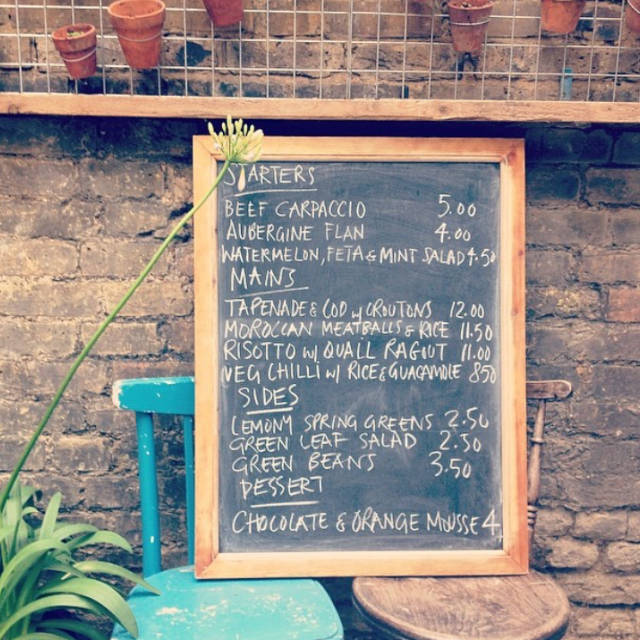 STARTERS
BEEF CARPACCIO 5.00
AUBERGINE FLAN 4.00
WATERMELON, FETA & MINT SALAD 4.50
MAINS
TAPENADE & COD w/ CROUTONS 12.00
MOROCCAN MEATBALLS & RICE 11.50
RISOTTO w/ QUAIL RAGOUT 11.00
VEG CHILLI w/ RICE & GUACAMOLE 8.50
SIDES
LEMONY SPRING GREENS 2.50
GREEN LEAF SALAD 2.50
GREEN BEANS 3.50
DESSERT
CHOCOLATE & ORANGE MOUSSE 4